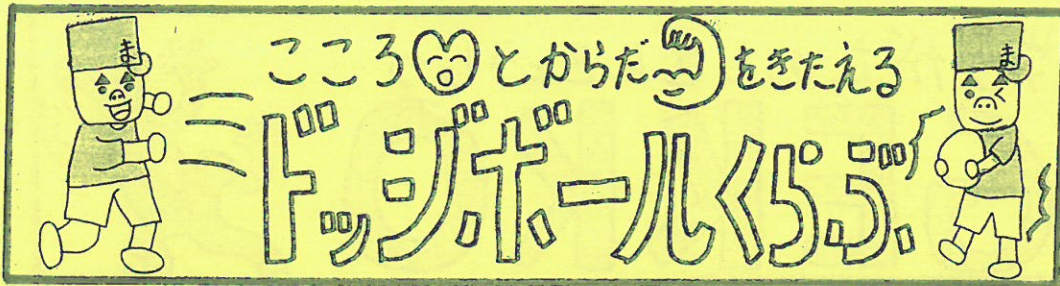 ま
こころとからだをきたえる
ドッジボールくらぶ
ま